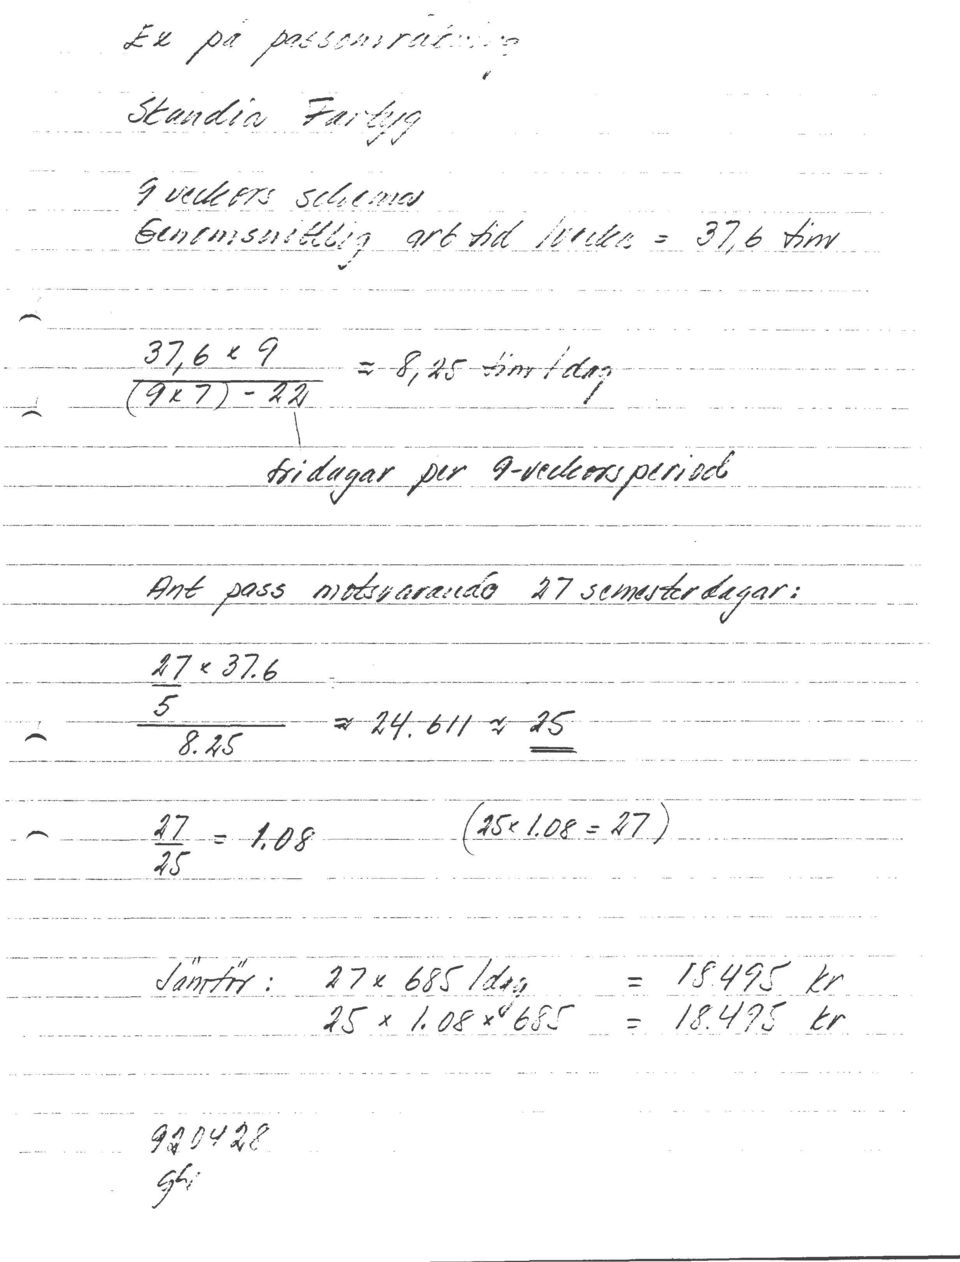 Ex på passomräkning
Skandia Fartyg
9 veckors schema
Genomsnittlig arb tid /vecka = 37,6 tim
37,6 x 9
(9x7) - 22
≈ 8,25 tim/dag
fridagar per 9-veckorsperiod
Ant pass motsvarande 27 semesterdagar:
27 x 37.6
5
8.25
≈ 24.611 ≈ 25
27
25
= 1.08 (25x1.08 = 27)
Jämför: 27 x 685/dag = 18.495 kr
25 x 1.08 x 685 = 18.495 kr
920428